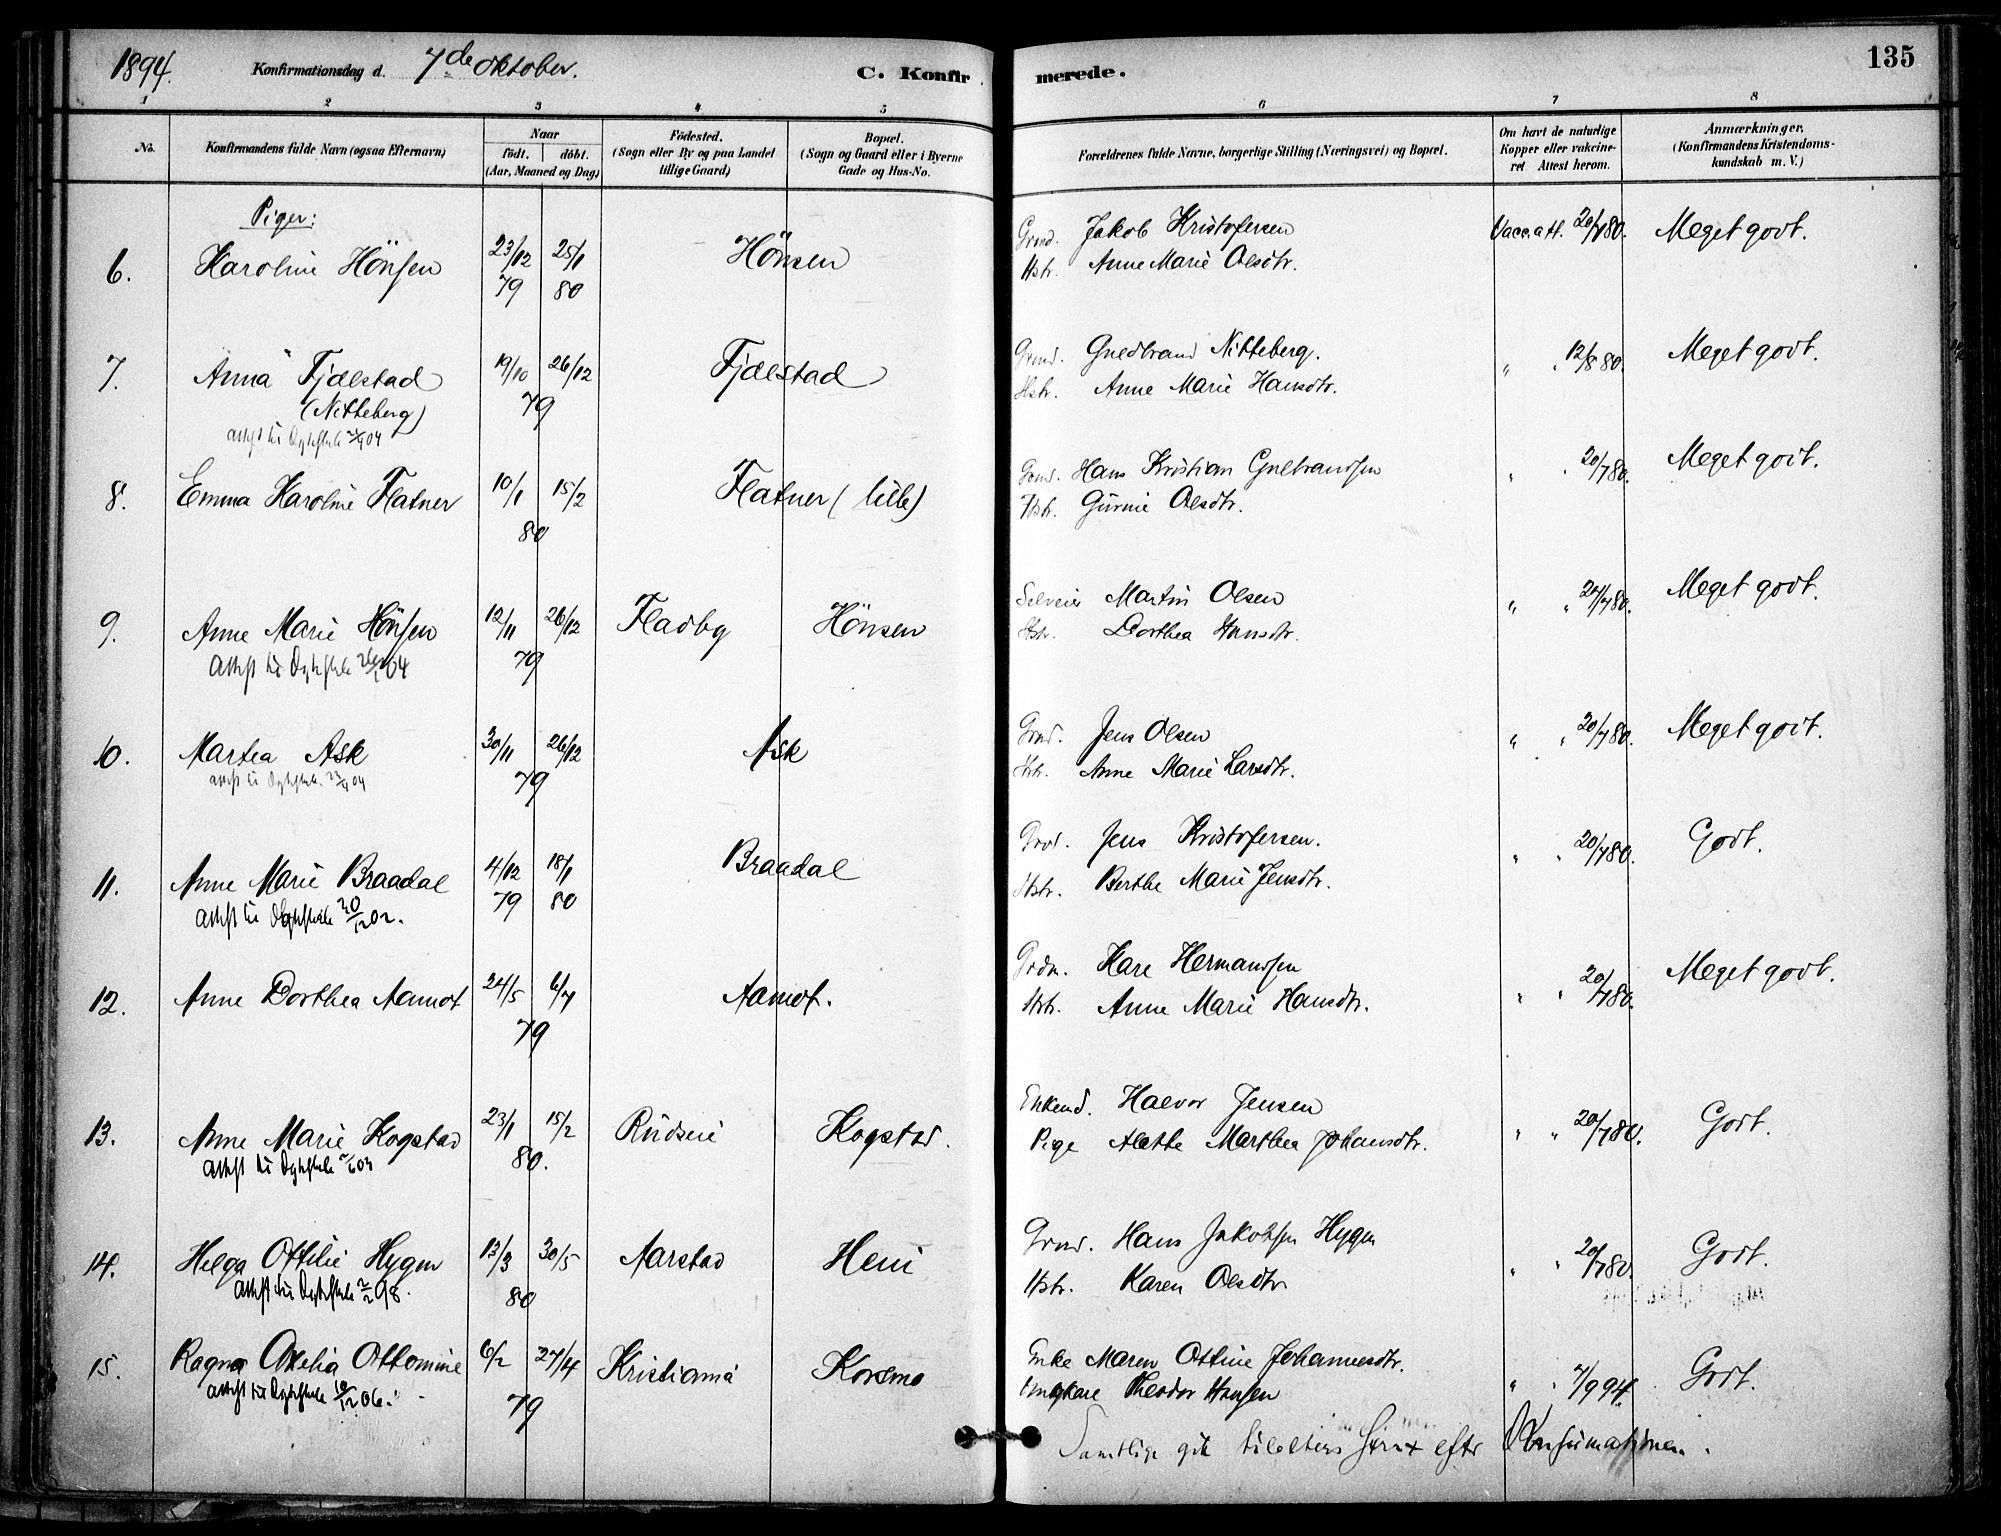 1894. Konfirmationsdag d. 7de oktober. C. Konfirmerede. 135
1 2 3 4 5 6 7 8
No. Konfirmandens fulde Navn (ogsaa Efternavn) Naar födt. döbt. (Aar, Maaned og Dag) Födested. (Sogn eller By og paa Landet tillige Gaard) Bopæl. (Sogn og Gaard eller i Byerne Gade og Hus-No. Forældrenes fulde Navne, borgerlige Stilling (Næringsvei) og Bopæl. Om havt de naturlige Kopper eller vakcineret Attest herom. Anmærkninger. (Konfirmandens Kristendomskundskab m. V.)
Piger:
6. Karoline Hönsen 23/12 79 25/1 80 Hönsen Grmd. Jakob Kristofersen Vacc. att. 20/7 80. Meget godt.
Hstr. Anne Marie Olsdtr.
7. Anna Fjælstad 19/10 26/12 79 Fjælstad Grmd. Gudbrand Nitteberg. " " 12/8 80. Meget godt.
(Nitteberg) Hstr. Anne Marie Hansdtr.
8. Emma Karoline Flatner 10/1 15/2 80 Flatner (lille) Grmd. Hans Kristian Gulbrandsen " " 20/7 80. Meget godt.
Hstr. Gurine Olsdtr.
9. Anne Marie Hönsen 12/11 26/12 79 Fladby Hönsen Selveier Martin Olsen " " 80. Meget godt.
Hstr. Dorthea Hansdtr.
10. Martea Ask 30/11 26/12 79 Ask Grmd. Jens Olsen " " 20/7 80. Meget godt.
Hstr. Anne Marie Larsdtr.
11. Anne Marie Braadal 4/12 79 18/1 80 Braadal Jens Kristofersen. " " 20/7 80. Godt.
Attest til 20/12 02. Hstr. Berthe Marie Jensdtr.
12. Anne Dorthea Aamot 24/5 6/7 79 Aamot. Karl Hermansen " " 20/7 80. Meget godt.
Hstr. Anne Marie Hansdtr.
13. Anne Marie Kogstad 23/1 15/2 80. Rudsei Kogstad. Enkemd. Halvor Jensen " " 20/7 80. Godt.
Pige Alette Marthea Johansdtr.
14. Helga Ottilie Hygen 13/3 30/5 80 Aarstad Heni Grmd. Hans Jakobsen Hygen " " 20/7 80. Godt.
Hstr. Karen Olsdtr
15. Ragna Otelia Ottomine 6/2 27/4 79 Kristiania Korsmo Enke Maren Ottine Johannesdtr. " " 7/9 94. Godt.
Attest til 10/12 06. Ungkarl Theodor Hansen
Samtlige gik til alters först efter Konfirmationen.